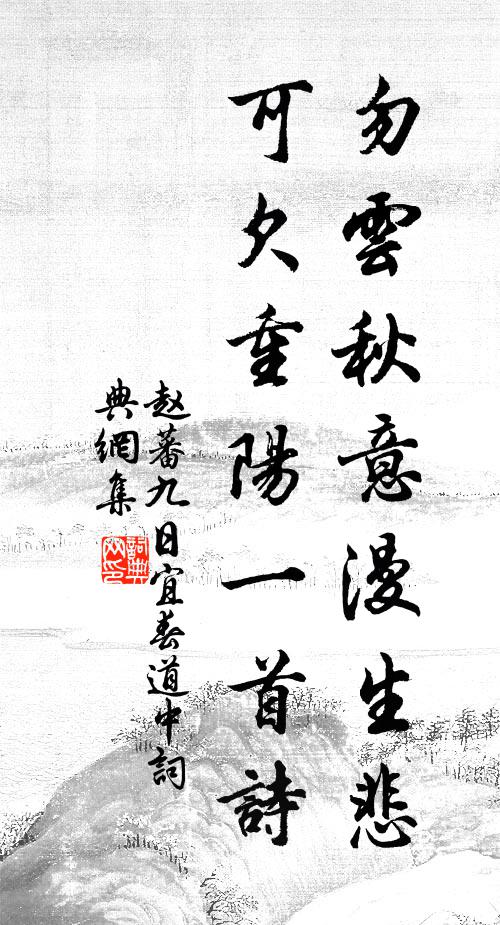 勿雲秋意漫生悲
可欠重陽一首詩
赵蕃九日宜春道中詞
典網集
詞典
网印